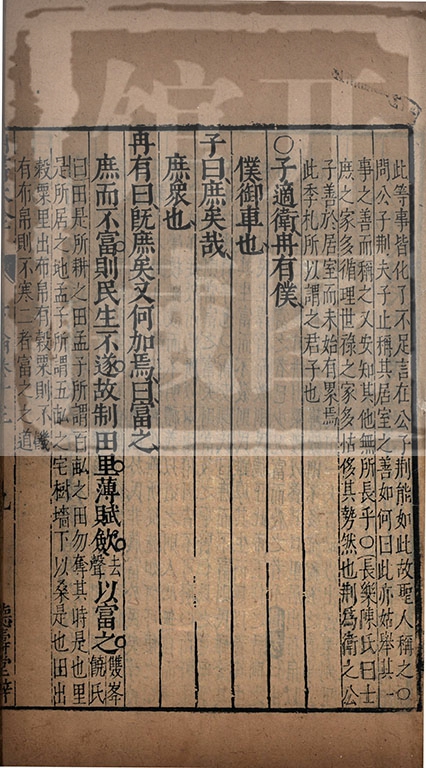 此等事皆化了不足言在公子荆能如此故聖人稱之〇
問公子荆夫子止稱其居室之善如何曰此亦姑舉其一
事之善而稱之又安知其他無所長乎〇長樂陳氏曰士
庶之家多循理世祿之家多怙侈其勢然也荆爲衛之公
子善於居室而未始有累焉
此季札所以謂之君子也
〇子適衛冉有僕
僕御車也
子曰庶矣哉
庶衆也
冉有曰旣庶矣又何加焉曰富之
庶而不富則民生不遂故制田里薄賦歛去聲以富之雙峯饒氏
曰田是所耕之田孟子所謂百畝之田勿奪其時是也里
是所居之地孟子所謂五畝之宅樹墻下以桑是也田出
穀粟里出布帛有穀粟則不饑
有布帛則不寒二者富之之道